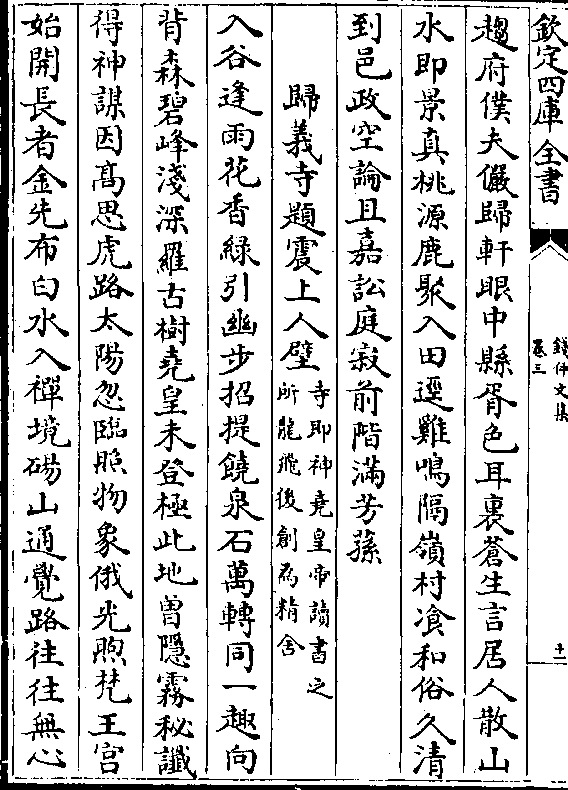 欽定四庫全書
錢仲文集
卷三
十一
趨府僕夫儼歸軒眼中縣胥色耳裏蒼生言居人散山
水即景真桃源鹿聚入田逕雞鳴隔嶺村飡和俗久清
到邑政空論且嘉訟庭寂前階滿芳蓀
歸義寺題震上人壁寺即神堯皇帝讀書之
所龍飛後創為精舍
入谷逢雨花香綠引幽步招提饒泉石萬轉同一趣向
背森碧峰淺深羅古樹堯皇未登極此地曽隱霧秘讖
得神謀因髙思虎踞太陽忽臨照物象俄光煦梵王宫
始開長者金先布白水入禪境碭山通覺路往往無心